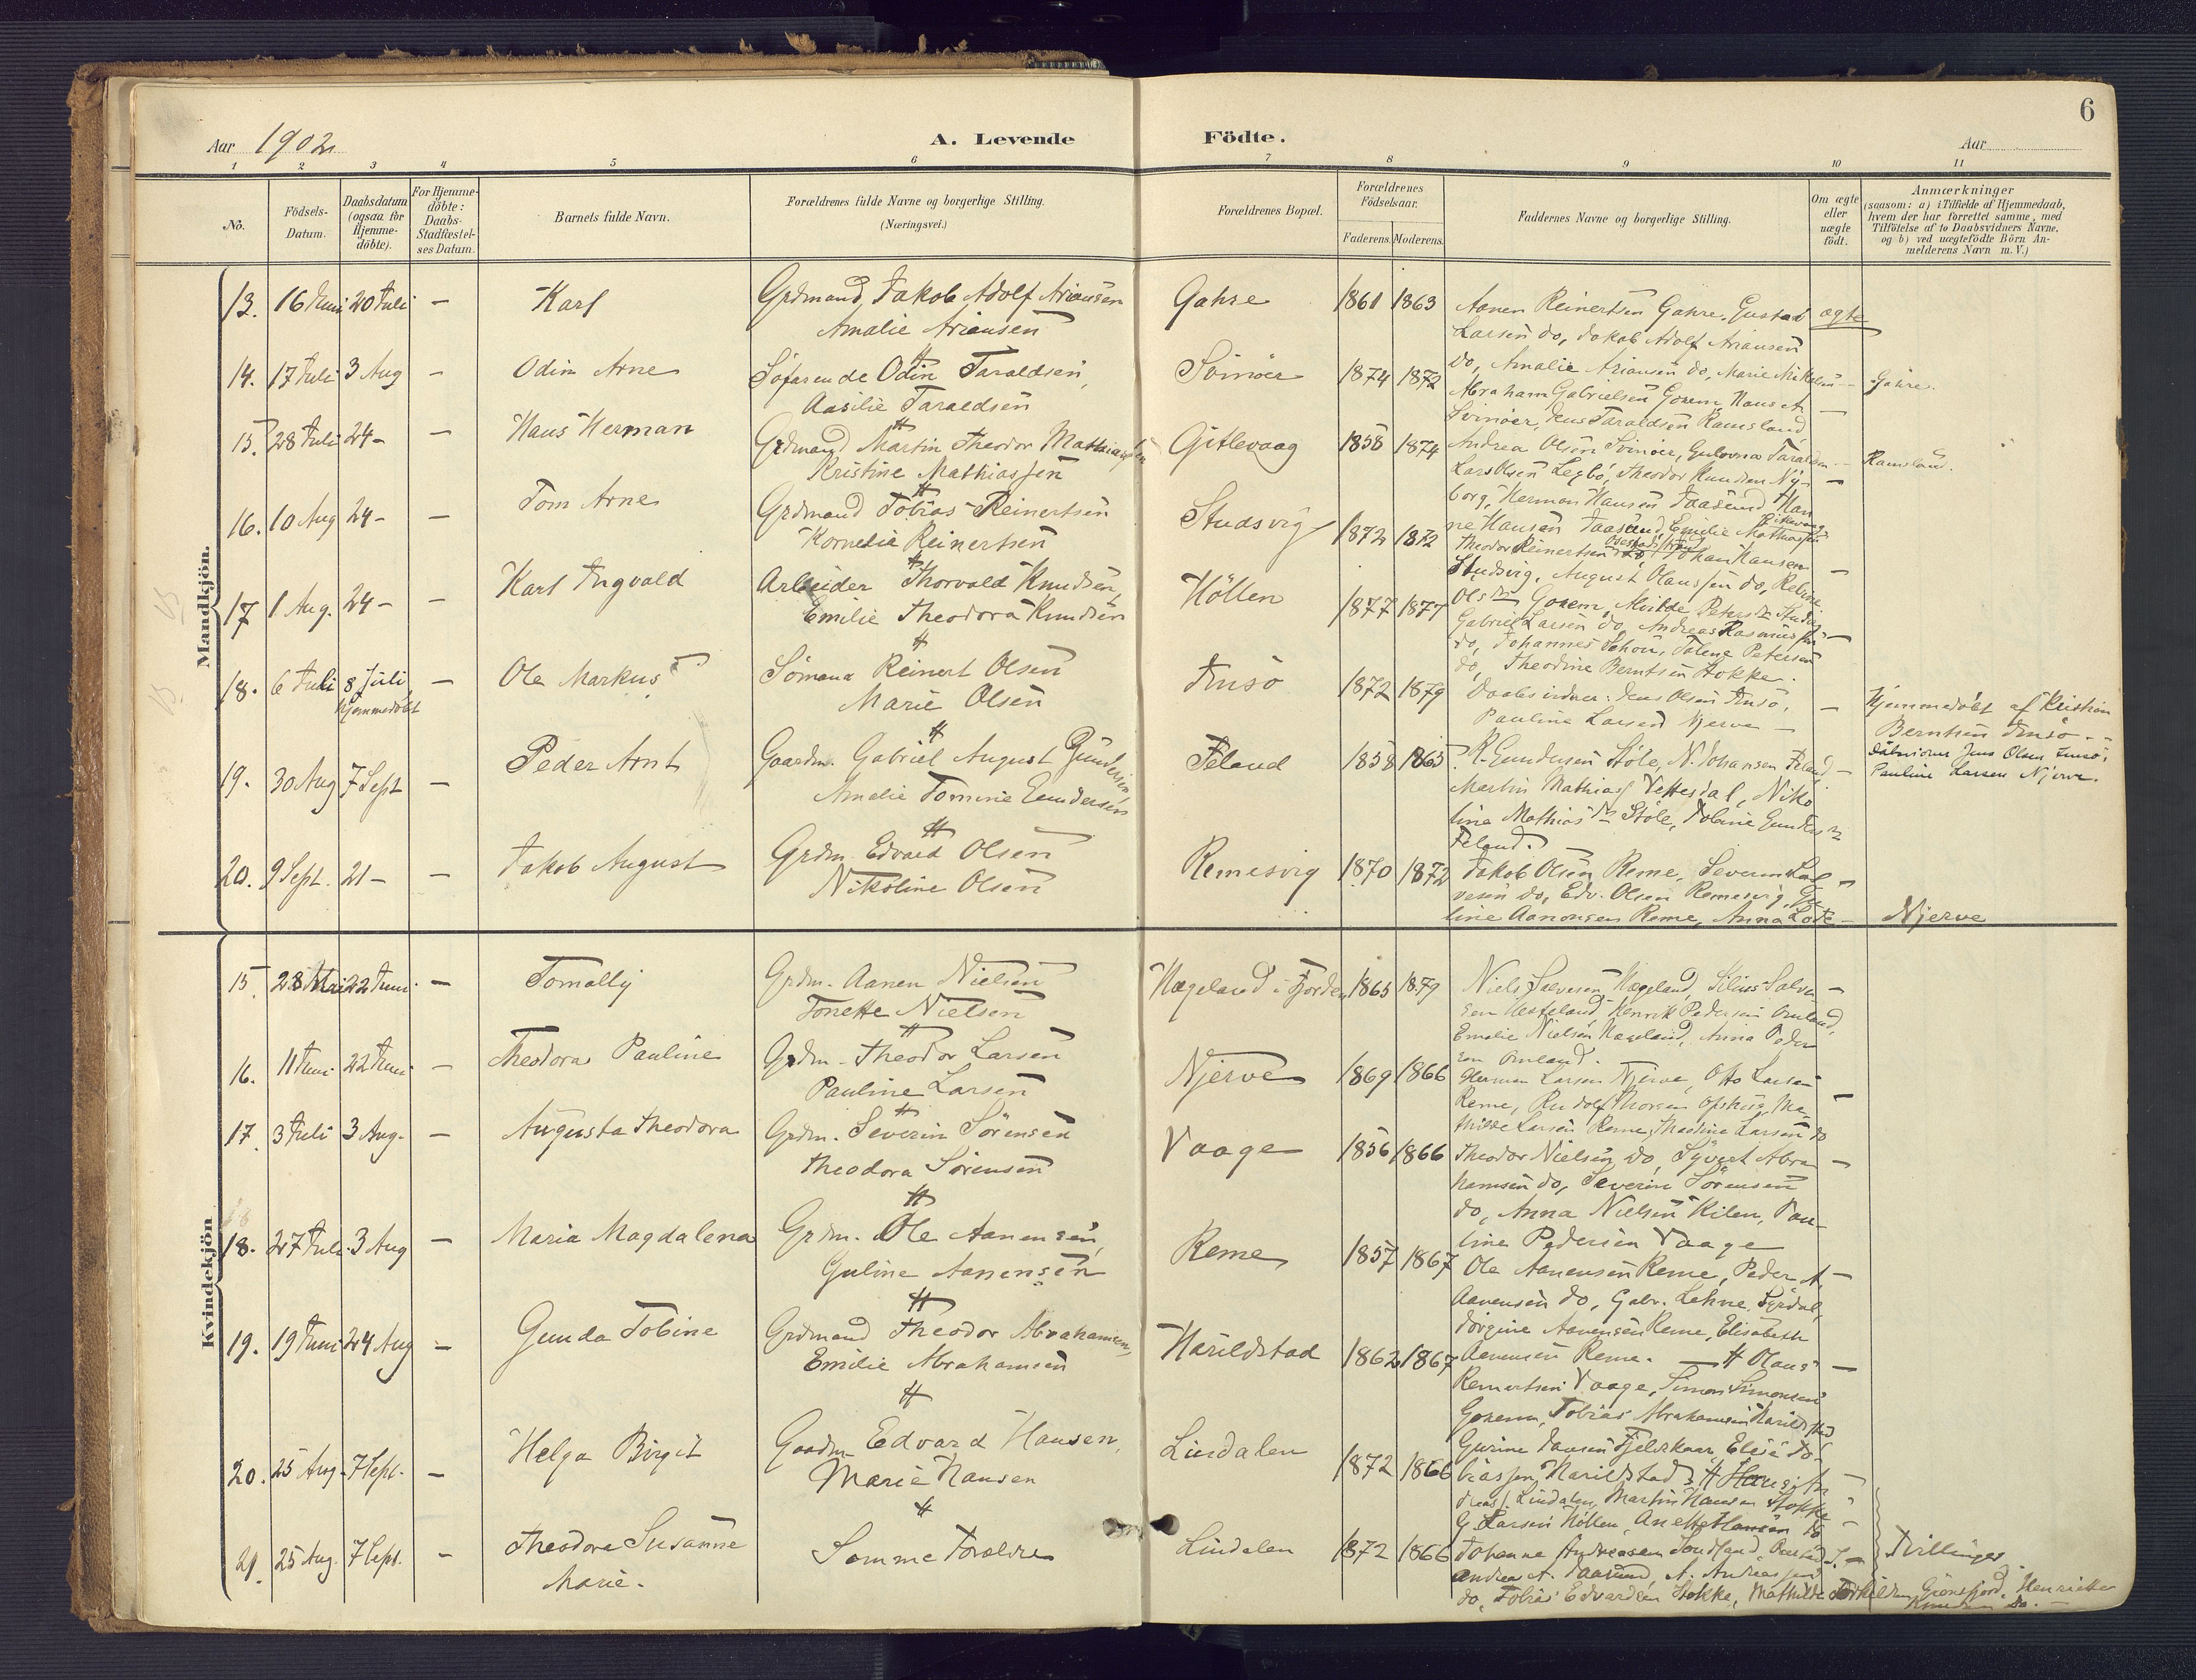 6
Aar 1902
A. Levende Födte.
Aar
1 2 3 4 5 6 7 8 9 10 11
No.
Födsels-
Datum.
Daabsdatum
(ogsaa for
Hjemme-
döbte).
For Hjemme-
döbte:
Daabs-
Stadfæstel-
ses Datum.
Barnets fulde Navn.
Forældrenes fulde Navne og borgerlige Stilling.
(Næringsvei.)
Forældrenes Bopæl.
Forældrenes
Födselsaar.
Faderens. Moderens.
Faddernes Navne og borgerlige Stilling.
Om ægte
eller
uægte
födt.
Anmærkninger
(saasom: a) i Tilfælde af Hjemmedaab,
hvem der har forrettet samme, med
Tilföielse af to Daabsvidners Navne,
og b) ved uægtefödte Börn An-
melderens Navn m. V.)
Mandkjön.
13. 16 Juni 20 Juli – Karl
Grdmand Jakob Adolf Ariansen
Amalie Ariansen
Gahre 1861 1863
Aanen Reinertsen Gahre, Gustav
Larsen do, Jakob Adolf Ariansen
do, Amalie Ariansen do, Marie Mikkelsen
ægte
Gahre.
14. 17 Juli 3 Aug – Odin Arne
Søfarende Odin Taraldsen
Aasilie Taraldsen
Svinöer 1874 1872
Abraham Gabrielsen Gosem, Hans A.
Svinöer, Jens Taraldsen Ramsland
Andrea Olsen Svinöer, Gulovna Taraldsen
Ramsland.
15 28 Juli 24 – – Hans Herman
Grdmand Martin Theodor Mathiassen
Kristine Mathiassen
Gitlevaag 1858 1874
Lars Olsen Legbö, Theodor Knudsen Ny-
borg, Herman Hansen Taasund, Han
ne Hansen Taasund, Emilie Mathiassen
16. 10 Aug 24 – – Tom Arne
Grdmand Tobias Reinertsen
Kornelia Reinertsen
Studsvig 1872 1872
Theodor Reinertsen Johan Hansen
Studsvig, August Olaussen do,
Olsen Gosem,
17 1 Aug. 24 – – Karl Ingvald
Arbeider Thorvald Knudsen,
Emilie Theodora Knudsen
Höllen 1877 1877
Gabriel Larsen do, Andreas Rasmussen
do, Johannes Schou, Talene Petersen
do, Theodine Berntsen Stokke.
18. 6 Juli 8 Juli – Ole Markus
Hjemmedöbt
Sömand Reinert Olsen
Marie Olsen
Imsö 1872 1879
Daabsvidner: Jens Olsen Imsö,
Pauline Larsen Njerve –
Hjemmedöbt af Kristian
Berntsen Imsö
Jens Olsen Imsö,
Pauline Larsen Njerve.
19. 30 Aug 7 Sept – Peder Arnt
Gaardm. Gabriel August Gundersen
Amalie Tomine Gundersen
Föland 1858 1865
K. Gundersen Stöle, N. Johansen Föland
Martin Mathias Vettesdal, Niko
line Mathiasn Stöle, Tobine Gundersn
Föland.
20. 9 Sept. 21 – – Jakob August
Grdm. Edvard Olsen
Nikoline Olsen
Remesvig 1870 1872
Jakob Olsen Reme, Severin Sal
vesen do, Edv. Olsen Remesvig, Gu
line Aanonsen Reme, Anna Lode
Njerve
Kvindekjön
15. 28 Mai 22 Juni – Tomally
Grdm. Aanen Nielsen
Tonette Nielsen
Hægeland i Fjorden 1865 1879
Niels Salvesen Hægeland, Silius Salve
sen Hesteland, Henrik Pedersen Omland,
Emelie Nielsen Hægeland, Anna Peder
sen Omland.
16. 11 Juni 22 Juni – Theodora Pauline
Grdm. Theodor Larsen
Pauline Larsen
Njerve 1869 1866
Herman Larsen Njerve, Otto Larsen
Reme, Rudolf Thorsen Ofshus, Ma-
thilde Larsen Reme, Theoline Larsen do
17. 3 Juli 3 Aug. – Augusta Theodora
Grdm. Severin Sörensen
Theodora Sörensen
Vaage 1856 1866
Theodor Nielsen do, Syvert Abra
hamsen do, Severin Sörensen
do, Anna Nielsen Kilen, Pau-
line Pedersen Vaage
18. 27 Juli 3 Aug – Maria Magdalena
Grdm. Ole Aanensen,
Guline Aanensen
Reme 1857 1867
Ole Aanensen Reme, Peder A
Aanensen do, Gabr. Lehne Syrdal,
Jörgine Aanensen Reme, Elisabeth
Aanensen Reme.
19. 19 Juni 24 Aug – Gunda Tobine
Grdmand Theodor Abrahamsen,
Emilie Abrahamsen
Harildstad 1862 1867
Olaus
Reinertsen Vaage, Simon Simonsen
Gosem, Tobias Abrahamsen Harildstad
Gurine Jansen Fjeldskaar, Elise To-
biassen Harildstad
20. 25 Aug. 7 Sept. – Helga Birgit
Gaardm Edvard Hansen,
Marie Hansen
Lindalen 1872 1866
Hans An
dreas. Lindalen, Martin Hansen Stokke
G. Larsen Höllen, Anette Hansen do
21. 25 Aug. 7 Sept. – Theodora Susanne
Marie.
Samme Forældre
Lindalen 1872 1866
Johanne Andreasen Sondland,
Andrea A. Taasund, A. Andreassen
do, Tobias Edvardsen Stokke, Mathilde Torkildsen Grönsfjord, Henriette
Knudsen do.
Tvillinger